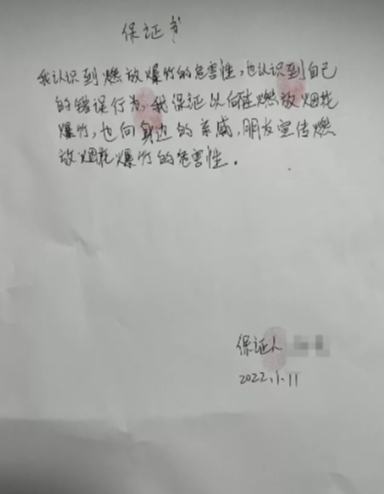 保证书
我认识到燃放爆竹的危害性,也认识到自己
的错误行为,我保证以后不燃放烟花
爆竹,也向身边的亲戚,朋友宣传燃
放烟花爆竹的危害性。
保证人
2022.1.11